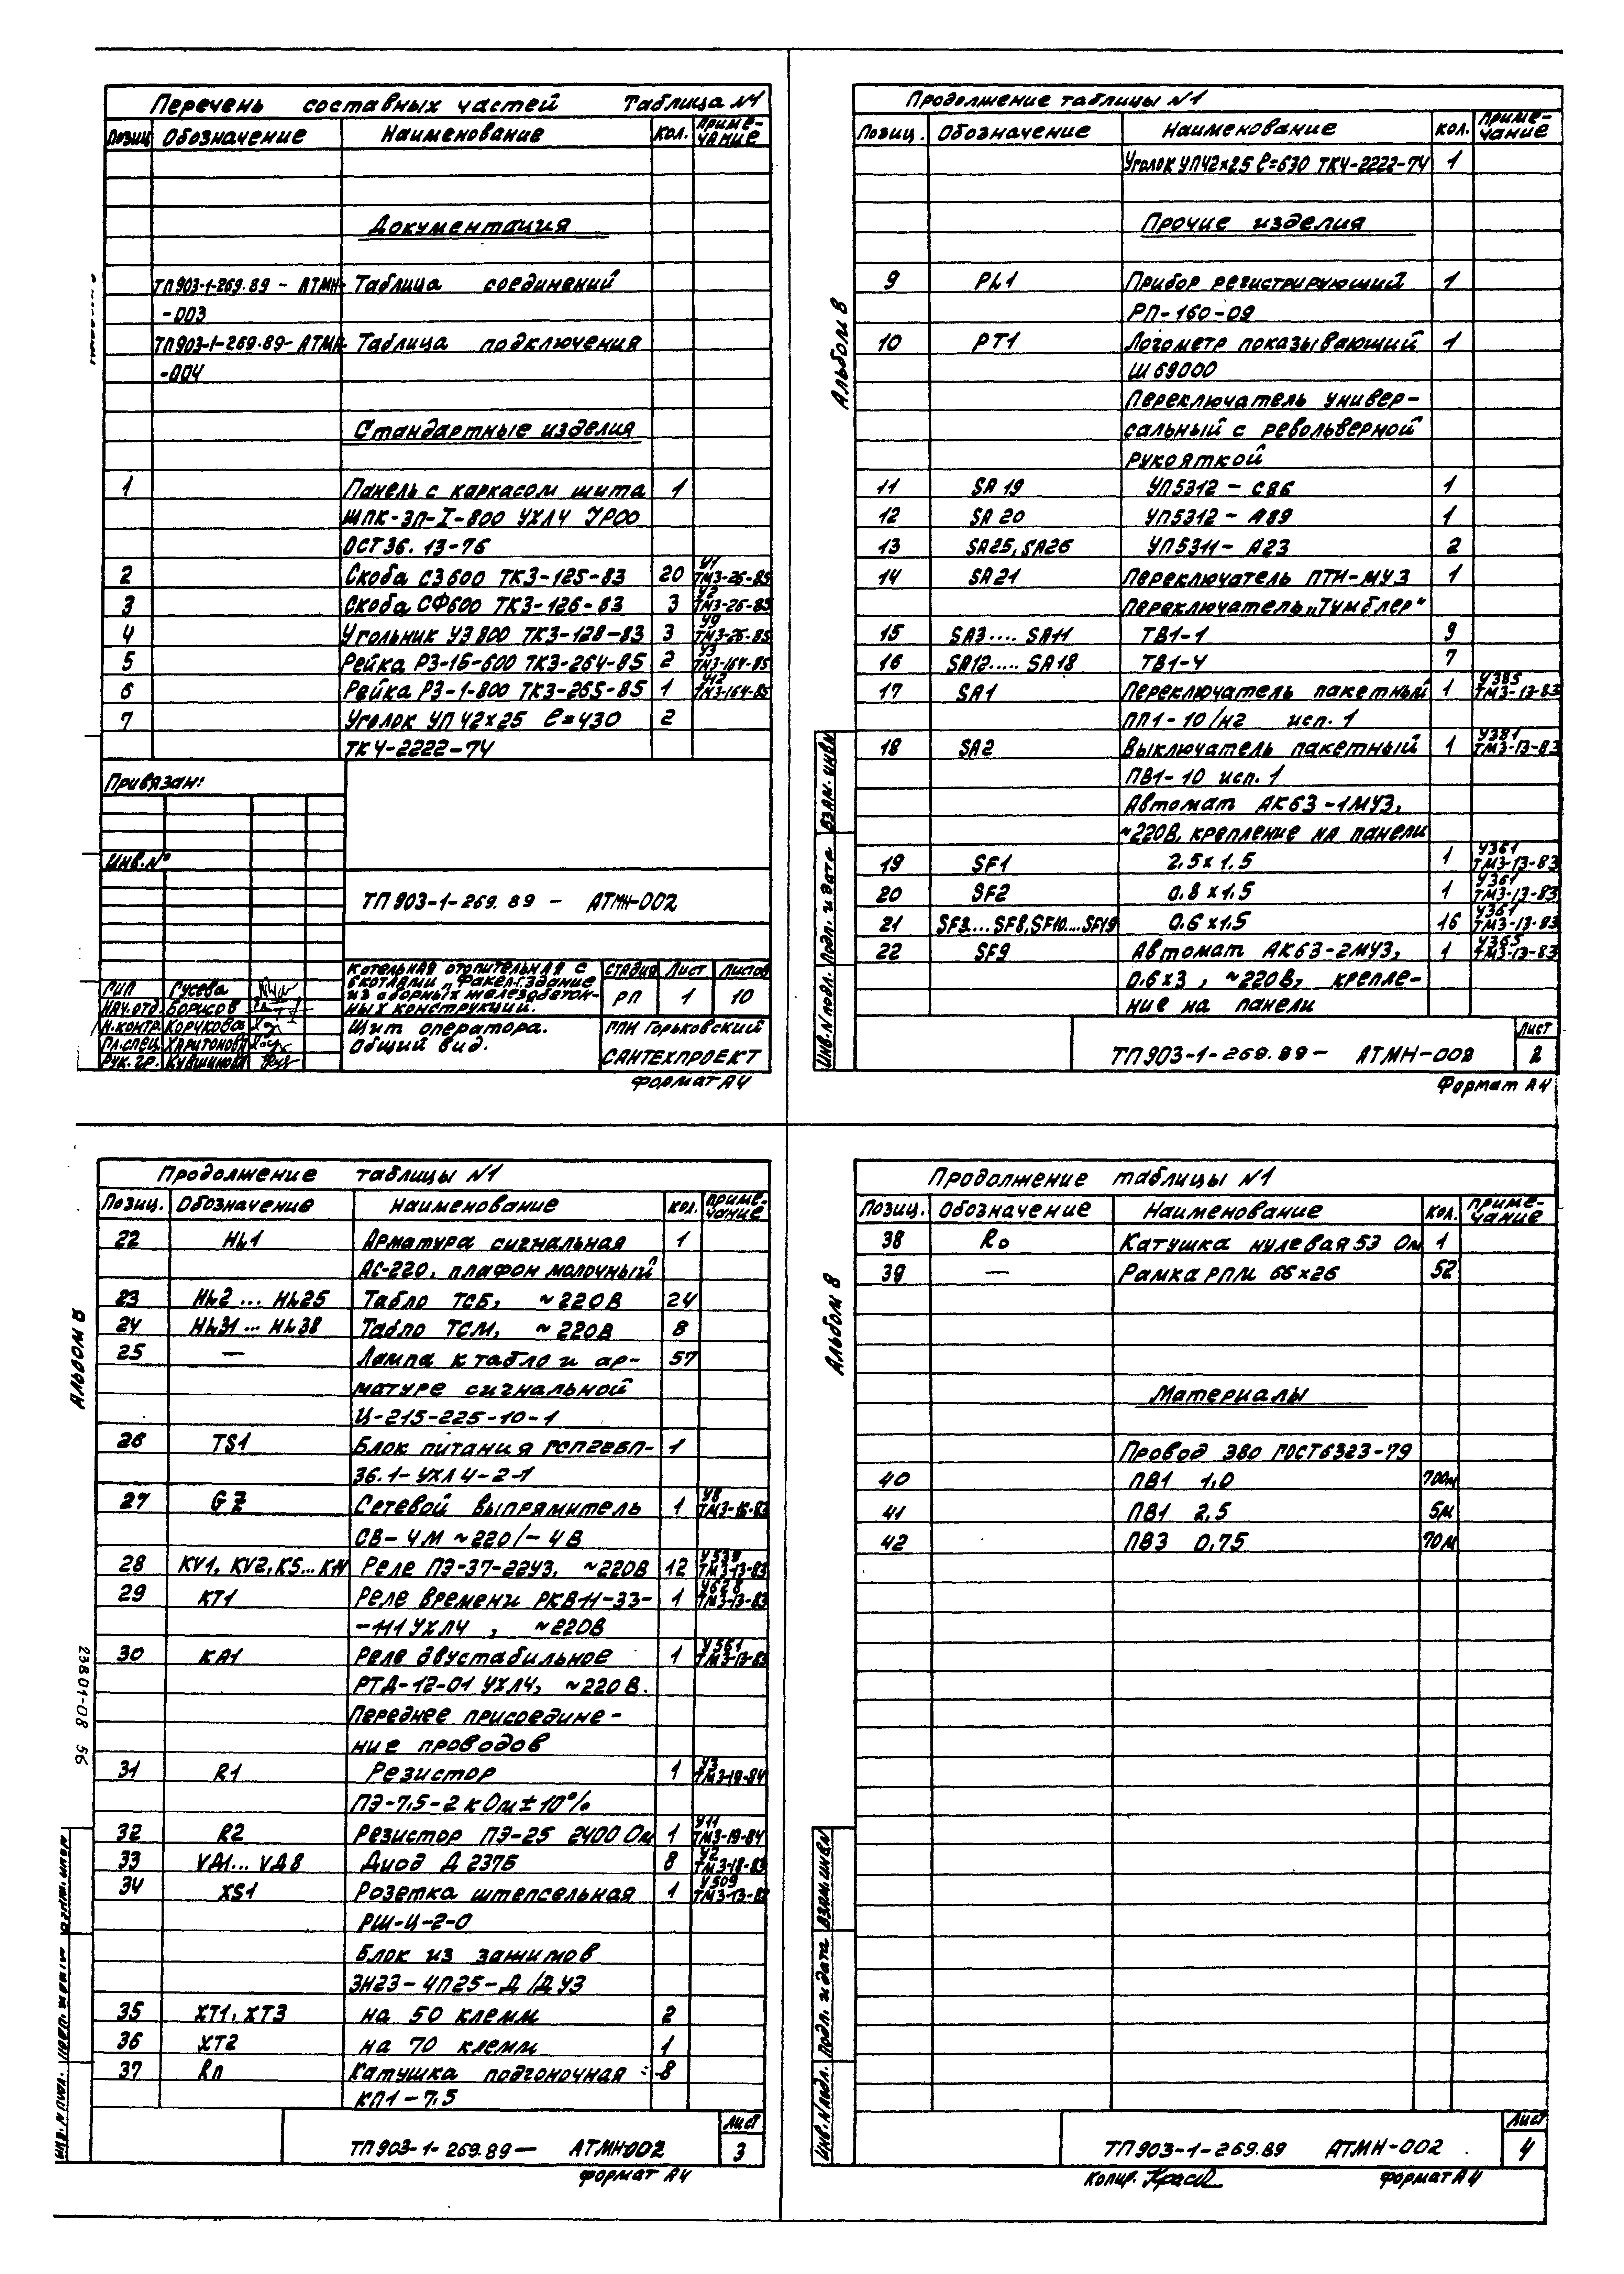 Перечень составных частей Таблица №1
Позиц. Обозначение Наименование Кол. Приме-
чание
Документация
ТП903-1-269.89 - АТМН- Таблица соединений
-003
ТП903-1-269.89- АТМН- Таблица подключения
-004
Стандартные изделия
1 Панель с каркасом щита 1
ЩПК-ЗП-I-800 УХЛ4 УР00
ОСТ36.13-76
2 Скоба С3600 ТК3-125-83 20 У1 ТМ3-26-85
3 Скоба СФ600 ТК3-126-83 3 У2 ТМ3-26-85
4 Угольник УЭ800 ТК3-128-83 3 У9 ТМ3-26-85
5 Рейка РЗ-1Б-600 ТК3-264-85 2 У3 ТМ3-164-85
6 Рейка РЗ-1-800 ТК3-265-85 1 У12 ТМ3-164-85
7 Уголок УП 42х25 ℓ=430 2
ТК4-2222-74
Привязан:
Инв.№
ТП 903-1-269.89 - АТМН-002
ГИП Гусева
Нач.отд. Борисов
Н.контр. Корчкова
Гл.спец. Харитонова
Рук.гр. Кувшинова
Котельная отопительная с
котлами „Факел-Г.Здание
из сборных железобетон-
ных конструкций.
Щит оператора.
Общий вид.
Стадия Лист Листов
РП 1 10
ГПИ Горьковский
САНТЕХПРОЕКТ
Формат А4
Продолжение таблицы №1
Альбом 8
Позиц. Обозначение Наименование Кол. Приме-
чание
Уголок УП42х25 ℓ=630 ТК4-2222-74 1
Прочие изделия
9 PL1 Прибор регистрирующий 1
РП-160-09
10 PT1 Логометр показывающий 1
Ш69000
Переключатель универ-
сальный с револьверной
рукояткой
11 SA 19 УП5312 - С86 1
12 SA 20 УП5312 - А89 1
13 SA25, SA26 УП5311 - А23 2
14 SA21 Переключатель ПТИ-МУЗ 1
Переключатель „Тумблер"
15 SA3.... SA11 ТВ1-1 9
16 SA12..... SA18 ТВ1-4 7
17 SA1 Переключатель пакетный 1 У385 ТМ3-13-83
ПП1-10/н2 исп. 1
18 SA2 Выключатель пакетный 1 У381 ТМ3-13-83
ПВ1-10 исп. 1
Автомат АК63-1МУЗ,
~220В, крепление на панели
19 SF1 2.5х1.5 1 У361 ТМ3-13-83
20 SF2 0.8х1.5 1 У361 ТМ3-13-83
21 SF3...SF8,SF10...SF19 0.6х1.5 16 У361 ТМ3-13-83
22 SF9 Автомат АК63-2МУЗ, 1 У365 ТМ3-13-83
0.6х3, ~220В, крепле-
ние на панели
Инв.N подл. Подп. и дата Взам. инвN
ТП903-1-269.89 - АТМН-002
Лист
2
Формат А4
Продолжение таблицы №1
Альбом 8
Позиц. Обозначение Наименование Кол. Приме-
чание
22 HL1 Арматура сигнальная 1
АС-220, плафон молочный
23 HL2 ... HL25 Табло ТСБ, ~220В 24
24 HL31 ... HL38 Табло ТСМ, ~220В 8
25 — Лампа к табло и ар- 57
матуре сигнальной
Ц-215-225-10-1
26 TS1 Блок питания ГСП22БП- 1
36.1-УХЛ4-2-1
27 GZ Сетевой выпрямитель 1 У8
СВ-4М ~220/-4В
28 KV1, KV2, K5... Реле ПЭ-37-22УЗ, ~220В 12 У539 ТМ3-13-83
29 KT1 Реле времени РКВ11-33- 1 У628 ТМ3-13-83
-111УХЛ4, ~220В
30 KA1 Реле двустабильное 1 У561 ТМ3-13-83
РТД-12-01 УХЛ4, ~220В.
Переднее присоедине-
ние проводов
31 R1 Резистор 1 У3 ТМ3-19-84
ПЭ-7,5-2 кОм±10%
32 R2 Резистор ПЭ-25 2400 Ом 1 У11 ТМ3-19-84
33 VД1... VД8 Диод Д 237Б 8 У2 ТМ3-18-83
34 XS1 Розетка штепсельная 1 У509 ТМ3-13-83
РШ-Ц-2-0
Блок из зажимов
ЗН23-4П25-Д/ДУЗ
35 XT1, XT3 на 50 клемм 2
36 XT2 на 70 клемм 1
37 Rп Катушка подгоночная 8
КП1-7,5
23801-08 56
ТП903-1-269.89 — АТМН-002
Лист
3
Формат А4
Продолжение таблицы №1
Альбом 8
Позиц. Обозначение Наименование Кол. Приме-
чание
38 Ro Катушка нулевая 53 Ом 1
39 — Рамка РПМ 66х26 52
Материалы
Провод 380 ГОСТ6323-79
40 ПВ1 1,0 700м
41 ПВ1 2,5 5м
42 ПВ3 0,75 70м
Инв.N подл. Подп. и дата Взам.инвN
ТП903-1-269.89 АТМН-002
Лист
4
Копир.
Формат А4